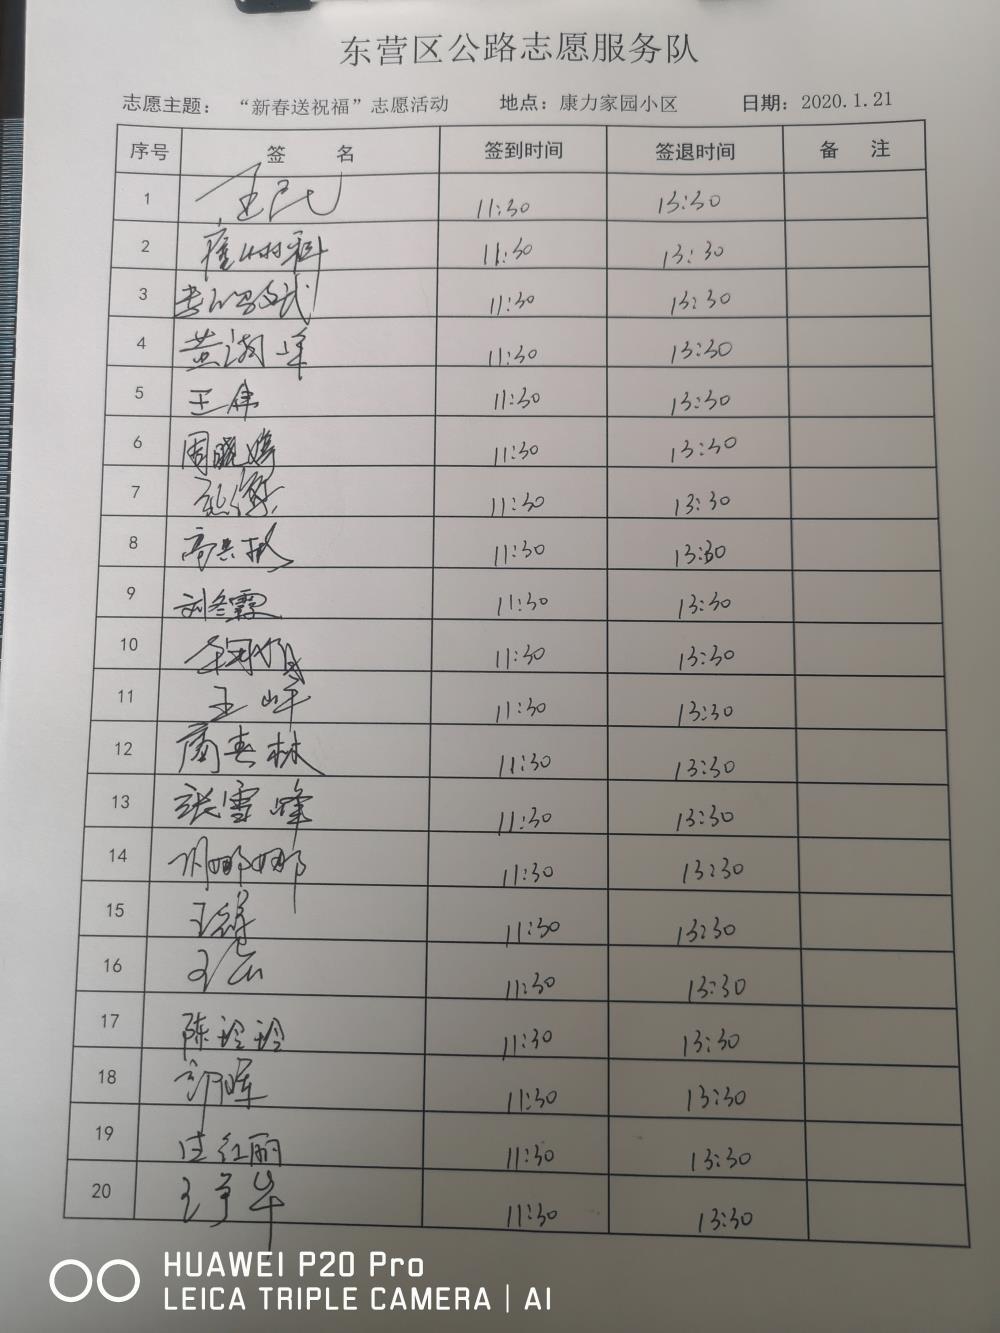 东营区公路志愿服务队
志愿主题：“新春送祝福”志愿活动 地点：康力家园小区 日期：2020.1.21
序号 签 名 签到时间 签退时间 备 注
1 11:30 13:30
2 11:30 13:30
3 11:30 13:30
4 黄 11:30 13:30
5 王伟 11:30 13:30
6 周晓婷 11:30 13:30
7 11:30 13:30
8 高 11:30 13:30
9 刘冬霞 11:30 13:30
10 11:30 13:30
11 王峰 11:30 13:30
12 春林 11:30 13:30
13 张雪峰 11:30 13:30
14 娜娜 11:30 13:30
15 王 11:30 13:30
16 王 11:30 13:30
17 陈玲玲 11:30 13:30
18 晖 11:30 13:30
19 红丽 11:30 13:30
20 王 华 11:30 13:30
HUAWEI P20 Pro
LEICA TRIPLE CAMERA | AI